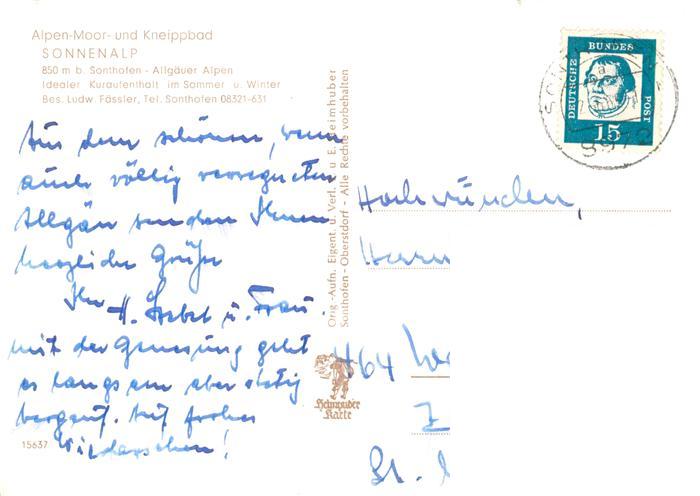 Alpen-Moor- und Kneippbad
SONNENALP
850 m b. Sonthofen - Allgäuer Alpen
Idealer Kuraufenthalt im Sommer u. Winter
Bes. Ludw. Fässler, Tel. Sonthofen 08321-631
Aus dem schönen, wenn
auch völlig verregneten
Allgäu senden Ihnen
herzliche Grüße
Ihr H. u. Frau.
mit der Genesung geht
es langsam aber stetig
bergauf. Auf frohes
Wiedersehen!
15637
Orig.-Aufn. Eigent. u. Verl. u. E. Heimhuber
Sonthofen-Oberstdorf - Alle Rechte vorbehalten
Heimhuber
Karte
DEUTSCHE
BUNDES
POST
15
Hochwürden,
Herrn
464
St.